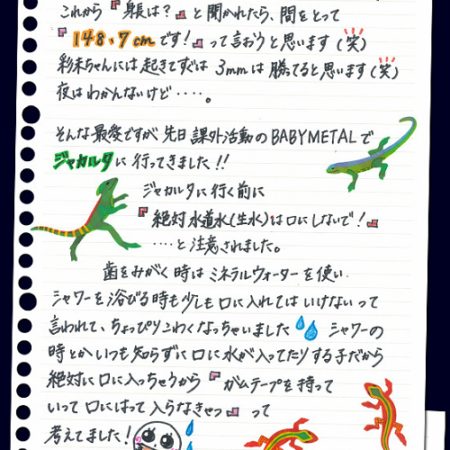 これから『身長は？』と聞かれたら、間をとって
『148.7cmです！』って言おうと思います(笑)
彩未ちゃんには起きてすぐは 3mmは勝てると思います(笑)
夜はわかんないけど‥‥。
そんな最愛ですが先日課外活動のBABYMETALで
ジャカルタに行ってきました!!
ジャカルタに行く前に
『絶対水道水(生水)は口にしないで！』
‥‥と注意されました。
歯をみがく時はミネラルウォーターを使い、
シャワーを浴びる時も少しも口に入れてはいけないって
言われて、ちょっぴりこわくなっちゃいました シャワーの
時とかいつも知らずに口に水が入ってたりする子だから
絶対に口に入っちゃうから『ガムテープを持って
いって口にはって入らなきゃっ』って
考えてました！